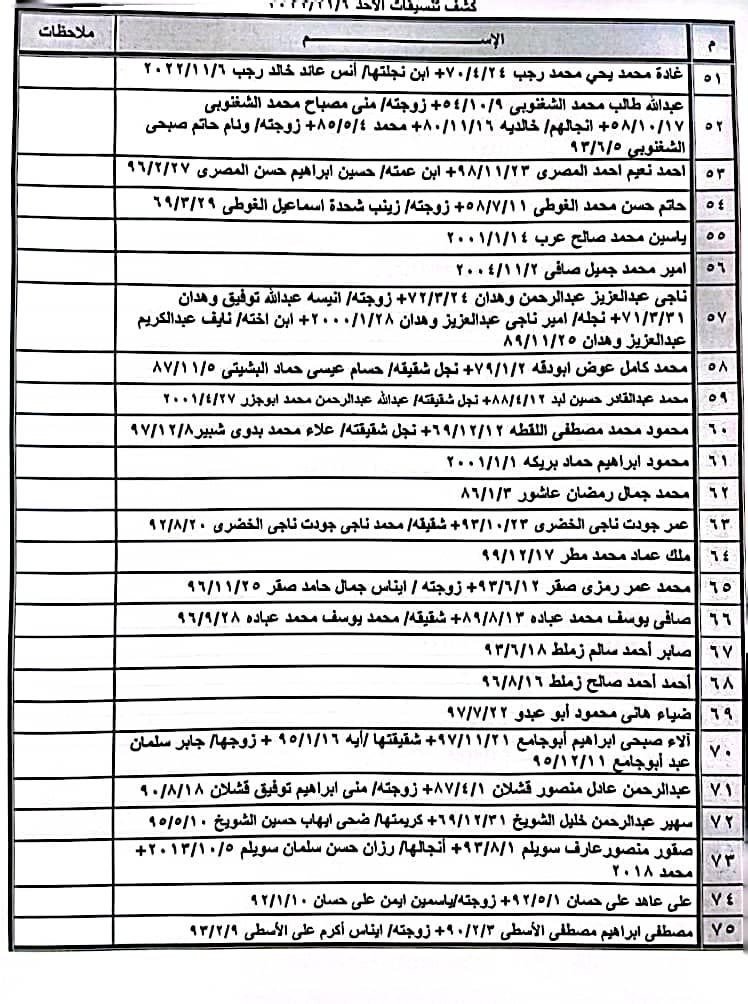 كشف تنسيقات الاحد
م الإســـم ملاحظات
٥١ غادة محمد يحي محمد رجب ٧٠/٤/٢٤+ ابن نجلتها/ أنس عائد خالد رجب ٢٠٢٢/١١/٦
٥٢ عبدالله طالب محمد الشغنوبى ٥٤/١٠/٩+ زوجته/ منى مصباح محمد الشغنوبى
٥٨/١٠/١٧+ انجالهم/ خالديه ٨٠/١١/١٦+ محمد ٨٥/٥/٤+ زوجته/ ونام حاتم صبحى
الشغنوبى ٩٣/٦/٥
٥٣ احمد نعيم احمد المصرى ٩٨/١١/٢٣+ ابن عمته/ حسين ابراهيم حسن المصرى ٩٦/٢/٢٧
٥٤ حاتم حسن محمد الغوطى ٥٨/٧/١١+ زوجته/ زينب شحدة اسماعيل الغوطى ٦٩/٣/٢٩
٥٥ ياسين محمد صالح عرب ٢٠٠١/١/١٤
٥٦ امير محمد جميل صافى ٢٠٠٤/١١/٢
٥٧ ناجى عبدالعزيز عبدالرحمن وهدان ٧٢/٣/٢٤+ زوجته/ انيسه عبدالله توفيق وهدان
٧١/٣/٣١+ نجله/ امير ناجى عبدالعزيز وهدان ٢٠٠٠/١/٢٨+ ابن اخته/ نايف عبدالكريم
عبدالعزيز وهدان ٨٩/١١/٢٥
٥٨ محمد كامل عوض ابودقه ٧٩/١/٢+ نجل شقيقه/ حسام عيسى حماد البشيتى ٨٧/١١/٥
٥٩ محمد عبدالقادر حسين لبد ٨٨/٤/١٢+ نجل شقيقته/ عبدالله عبدالرحمن محمد ابوجزر ٢٠٠١/٤/٢٧
٦٠ محمود محمد مصطفى اللقطه ٦٩/١٢/١٢+ نجل شقيقته/ علاء محمد بدوى شبير٩٧/١٢/٨
٦١ محمود ابراهيم حماد بريكه ٢٠٠١/١/١
٦٢ محمد جمال رمضان عاشور ٨٦/١/٣
٦٣ عمر جودت ناجى الخضرى ٩٣/١٠/٢٣+ شقيقه/ محمد ناجى جودت ناجى الخضرى ٩٢/٨/٢٠
٦٤ ملك عماد محمد مطر ٩٩/١٢/١٧
٦٥ محمد عمر رمزى صقر ٩٣/٦/١٢+ زوجته / ايناس جمال حامد صقر ٩٦/١١/٢٥
٦٦ صافى يوسف محمد عباده ٨٩/٨/١٣+ شقيقه/ محمد يوسف محمد عباده ٩٦/٩/٢٨
٦٧ صابر أحمد سالم زملط ٩٣/٦/١٨
٦٨ أحمد أحمد صالح زملط ٩٦/٨/١٦
٦٩ ضياء هانى محمود أبو عبدو ٩٧/٧/٢٢
٧٠ آلاء صبحى ابراهيم أبوجامع ٩٧/١١/٢١+ شقيقتها /أيه ٩٥/١/١٦ + زوجها/ جابر سلمان
عبد أبوجامع ٩٥/١٢/١١
٧١ عبدالرحمن عادل منصور قشلان ٨٧/٤/١+ زوجته/ منى ابراهيم توفيق قشلان ٩٠/٨/١٨
٧٢ سهير عبدالرحمن خليل الشويخ ٦٩/١٢/٣١+ كريمتها/ ضحى ايهاب حسين الشويخ ٩٥/٥/١٠
٧٣ صقور منصورعارف سويلم ٩٣/٨/١+ أنجالها/ رزان حسن سلمان سويلم ٢٠١٣/١٠/٥+
محمد ٢٠١٨
٧٤ على عاهد على حسان ٩٢/٥/١+ زوجته/ياسمين ايمن على حسان ٩٢/١/١٠
٧٥ مصطفى ابراهيم مصطفى الأسطى ٩٠/٢/٣+ زوجته/ ايناس أكرم على الأسطى ٩٣/٢/٩